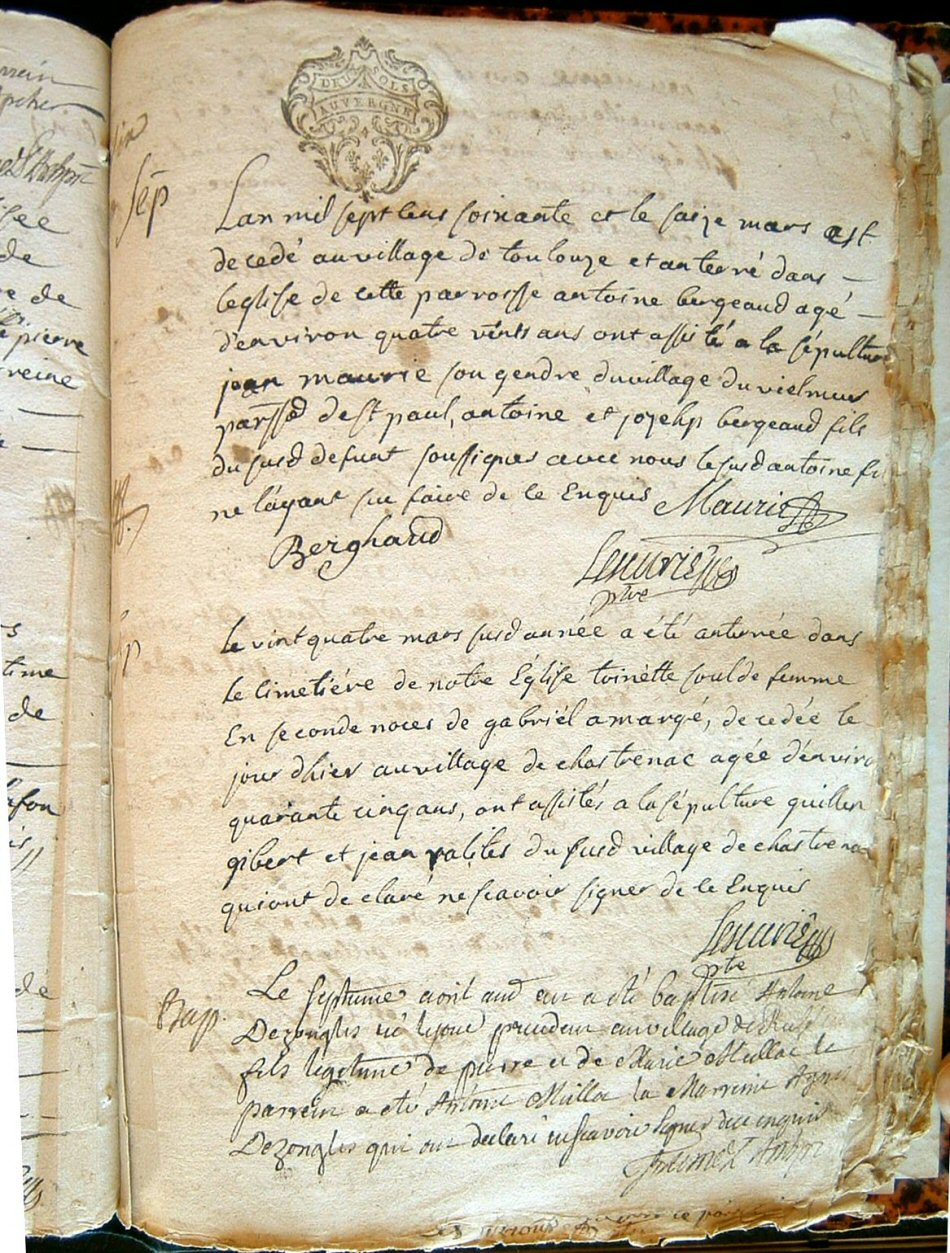 rrein
Apcher
isée
de
re de
pierre
rreine
s
time
de
lafon
is
de
DEUX SOLS
AUVERGNE
Sep
Lan mil sept cens soixante et le saize mars est
decedé au village de toulouze et anterré dans –
leglise de cette parrosse antoine bergeaud agé –
d'environ quatre vints ans ont assisté a la sépulture
jean maurie son gendre du village du vielmur
parssd de st paul, antoine et jozehp bergeaud fils
du susd defunt soussignes avec nous le susd antoine fi
ne layant su faire de ce Enquis Maurie
Berghaud
ptre
p
le vint quatre mars susd année a été anterrée dans
le cimetiére de notre Église toinette soulde femme
En seconde noces de gabriél amargé, decedée le
jour dhier au village de chastrenac agée d'enviro
quarante cinq ans, ont assistés a la sépulture quillen
gibert et jean valétes du susd village de chastrena
qui ont declaré ne scavoir signer de ce Enquis
ptre
Bap.
Le septieme avril aud an a été baptisé Antoine
Dezongles né le jour precedent au village de
fils legitime de pierre et de Marie Meillac le
parrein a eté Antoine Meillac la Marreine Agnes
Dezongles qui ont declaré ne scavoir signer de ce enquis